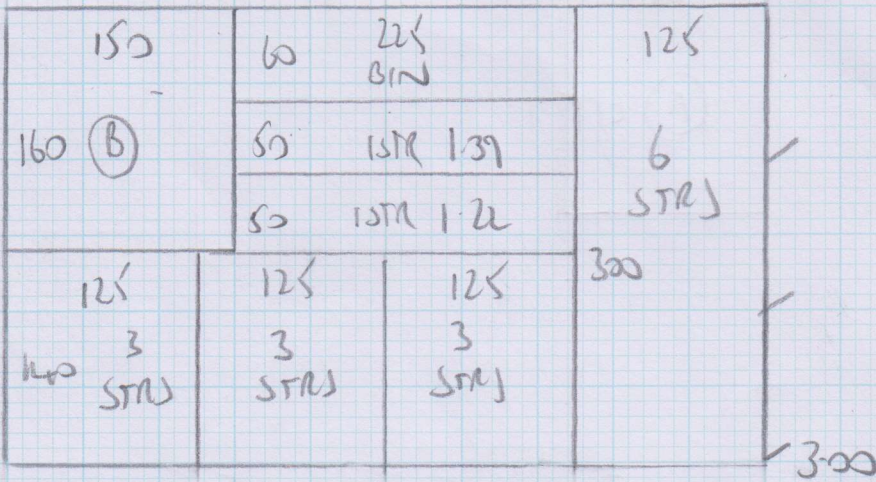 150
160 B
60 225
BIN
50 1STR 1.39
50 1STR 1.22
125
6
STRS
300
125
140 3
STRS
125
3
STRS
125
3
STRS
3.00